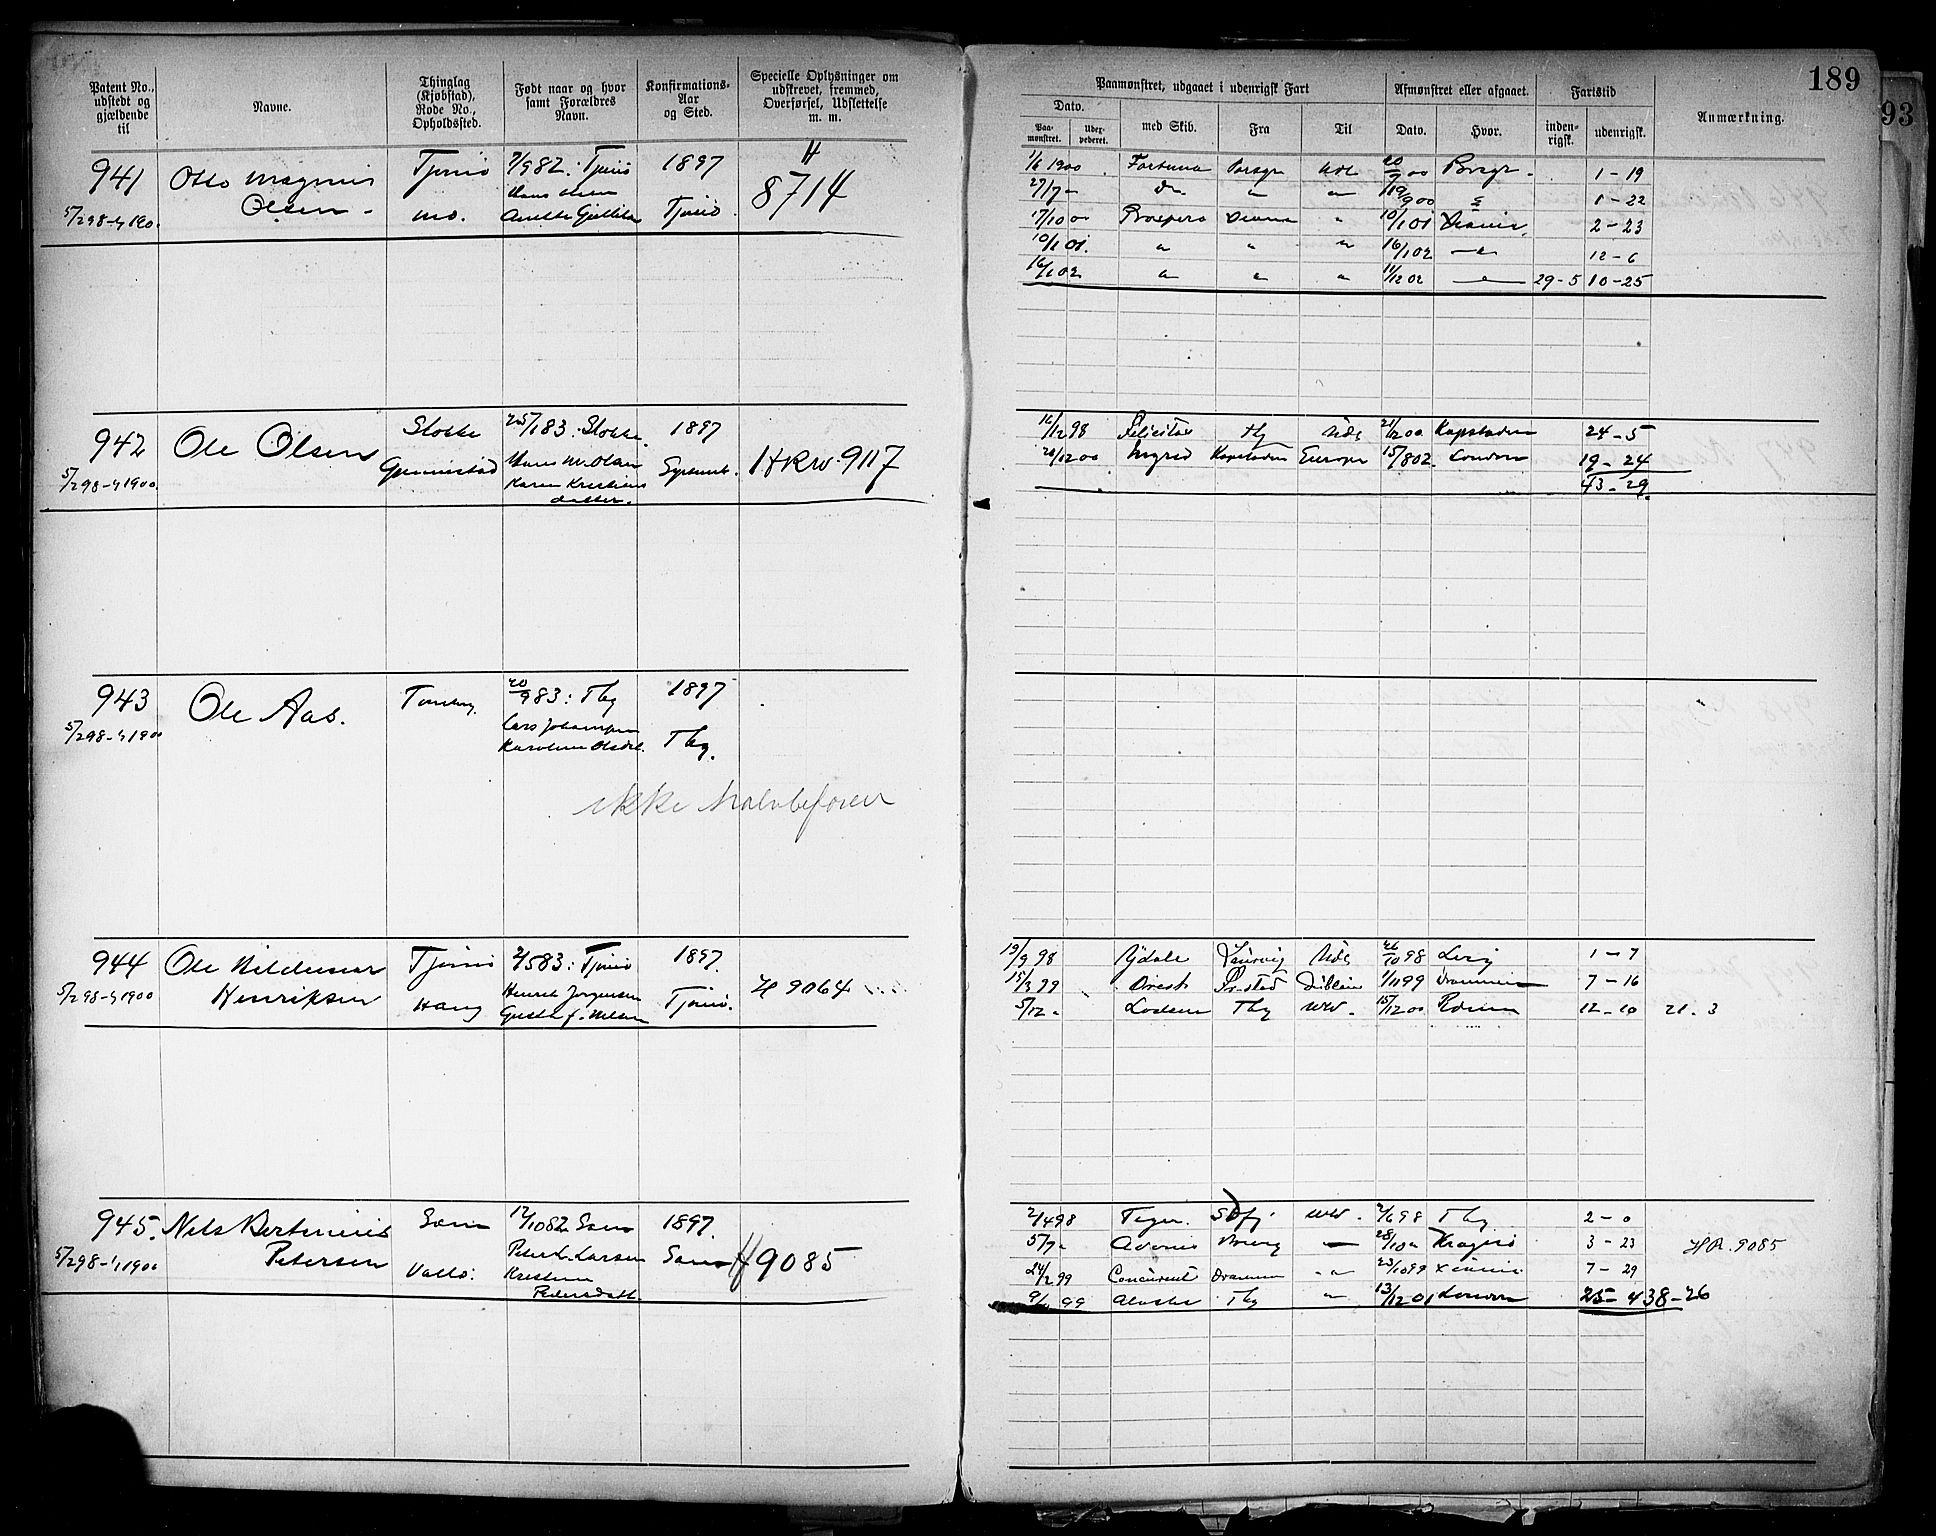 189
93
Patent No., udstedt og gjældende til
Navne.
Thinglag (Kjøbstad), Rode No., Opholdssted.
Født naar og hvor samt Forældres Navn.
Konfirmations-Aar og Sted.
Specielle Oplysninger om udskrevet, fremmed, Overførsel, Udslettelse m. m.
Paamønstret, udgaaet i udenrigsk Fart
Afmønstret eller afgaaet.
Fartstid
Anmærkning.
Dato.
Paa-mønstret.
Udex-pederet.
med Skib.
Fra
Til
Dato.
Hvor.
inden-rigsk.
udenrigsk.
941 Otto Magnus Tjømø 7/9 82: Tjømø 1897 H
Olsen Hans Olsen 8714
5/2 98 - 4/1 1900. Tjømø
1/6 1900 Fortuna Porsgr Udl 20/7 00 Porsgr. 1-19
27/7 - Do " " 19/9 00 1-22
17/10 00 Prospero " 10/1 01 2-23
10/1 01. " " " 16/1 02 12-6
16/1 02 " " " 11/12 02 29-5 10-25
942 Ole Olsen Stokke 25/1 83: Stokke. 1897
5/2 98 - 4/1 1900. Hans M. Olsen HRW. 9117
Karen Kristians
datter.
16/12 98 Felicitas Tbg Udl 21/12 00 Kapstaden 24-5
21/12 00 Ingrid Kapstaden Europa 15/8 02. London 19-24
43-29.
943 Ole Aas. Tønsberg. 20/9 83: Tbg 1897
5/2 98 - 4/1 1900 Lars Johansen
Karoline Olsdt. Tbg.
ikke
944 Ole Hildemar Tjømø 2/5 83: Tjømø 1897.
5/2 98 - 4/1 1900 Henriksen Henrik Jørgensen Tjømø. H 9064
19/9 98 Ydale Laurvig Udl 26/10 98 1-7
15/3 99 F-stad Dublin 1/11 99 Drammen 7-16
5/12 " Lodsen Tbg Udl. 15/12 00 12-10 21. 3
945. Nils Bertinius Sem 12/10 82 Sem 1897.
Petersen Peder L. Larsen Sem H 9085
5/2 98 - 4/1 1900 Vallø. Kristine
Pedersdatt.
2/4 98 Tiger. Udl. 2/6 98 Tbg 2-0
5/7 " Adonis 28/10 " Kragerø 3-23 HR. 9085
24/2 99 Concurrent Drammen " 23/10 99 Xiania 7-29
99 Alaska Tbg " 13/12 01 London 25-4 38-26